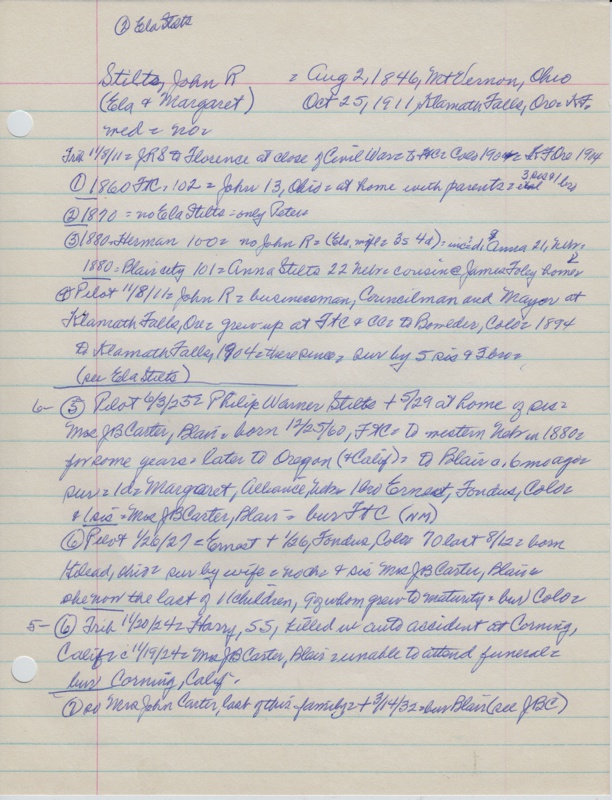 ② Ela Stilts
Stilts, John R = Aug 2, 1846, Mt Vernon, Ohio
(Ela & Margaret) Oct 25, 1911, Klamath Falls, Ore = KF.
med = no =
Trib 11/8/11 = JRS to Florence at close of Civil War = to = Colo 190 = KF Ore 1904
① 1860 FtC = 102 = John 13, Ohio = at home with parents = 3 sis & 1 bro
② 1870 = no Ela Stilts = only Peter =
③ 1880 = Herman 100 = no John R = (Ela, wife = 3s 4d) = incid. Anna 21, Nebr =
1880 = Blair city 101 = Anna Stilts 22 Nebr = cousin @ James Foley home =
④ Pilot 11/8/11 = John R = businessman, Councilman and Mayor at
Klamath Falls, Ore = grew up at FtC & = to Boulder, Colo = 1874
to Klamath Falls, 1904 = there since = sur by 5 sis & 3 bro =
(see Ela Stilts)
6- ⑤ Pilot 6/3/25 = Philip Warner Stilts + 5/29 at home of sis =
Mrs J B Carter, Blair = born 12/25/60, FtC = to western Nebr in 1880 =
for some years = later to Oregon (& Calif) = to Blair a. 6 mo ago =
sur = 1d = Margaret, Alliance, Nebr = 1 bro Ernest, Fondus, Colo =
& 1 sis = Mrs J B Carter, Blair = bur FtC (NM)
⑥ Pilot 1/26/27 = Ernest + 1/26, Fondus, Colo = 70 last 8/12 = born
Ohio = sur by wife = no ch = & sis Mrs J B Carter, Blair =
she now the last of 11 children, 9 of whom grew to maturity = bur Colo =
5- ⑥ Trib 11/20/24 = Harry, 55, killed in auto accident at Corning,
Calif = 11/19/24 = Mrs J B Carter, Blair = unable to attend funeral =
bur Corning, Calif.
⑦ Mrs John Carter, last of this family = + 3/14/32 = bur Blair (see JBC)